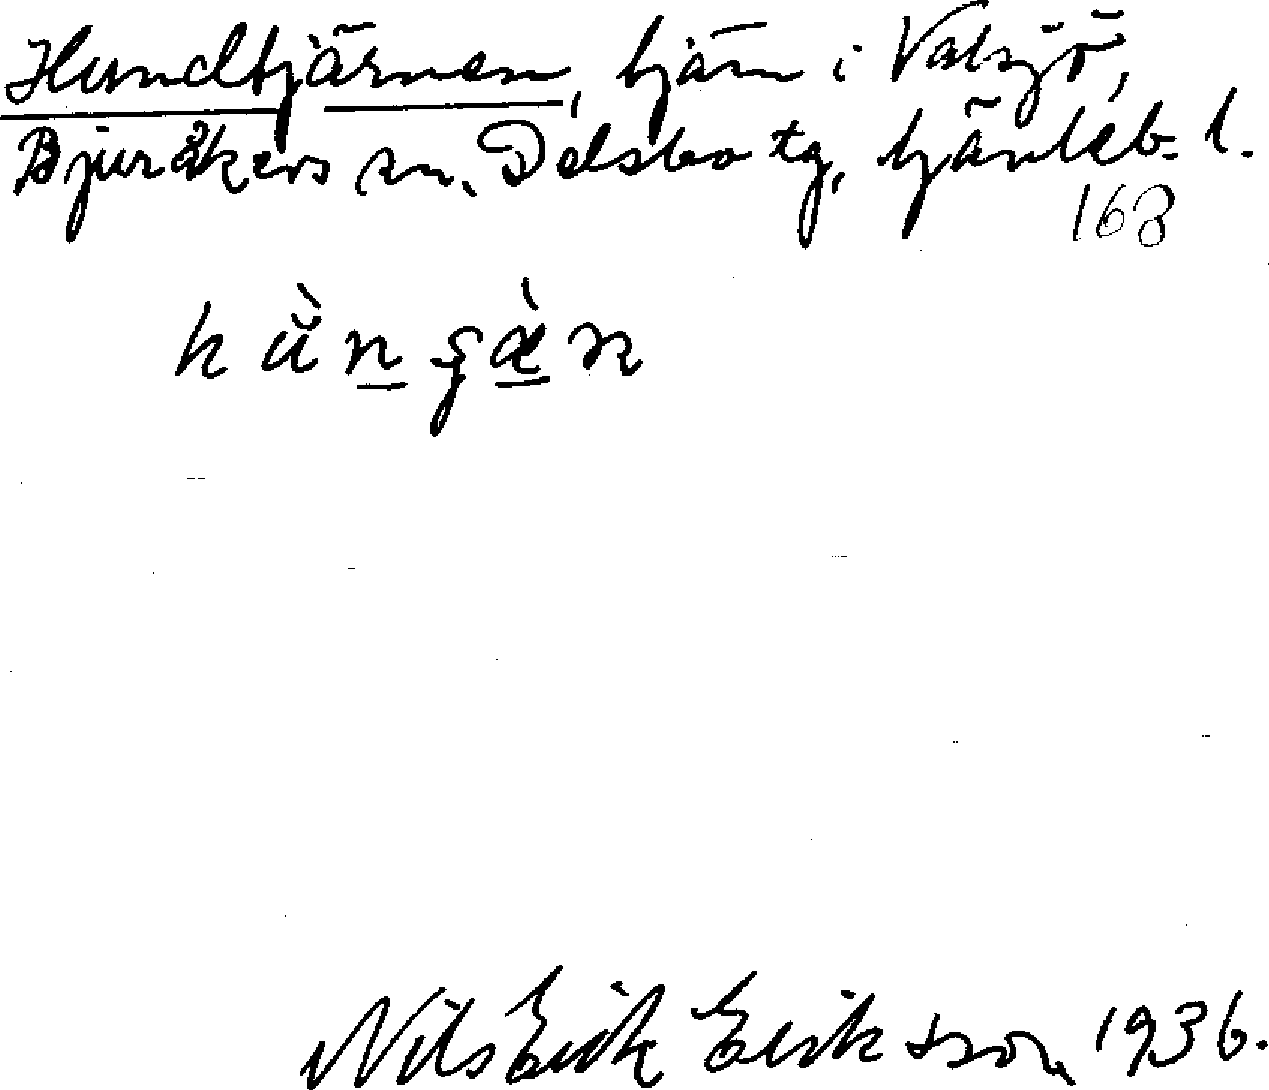 Hundtjärnen, tjärn i Valsjö,
Bjuråkers sn. Delsbo tg, Gävleb. l.
168
Nils Erik Eriksson 1936.